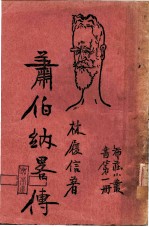 海莊小叢
書第一冊
林履信著
蕭伯納畧傳